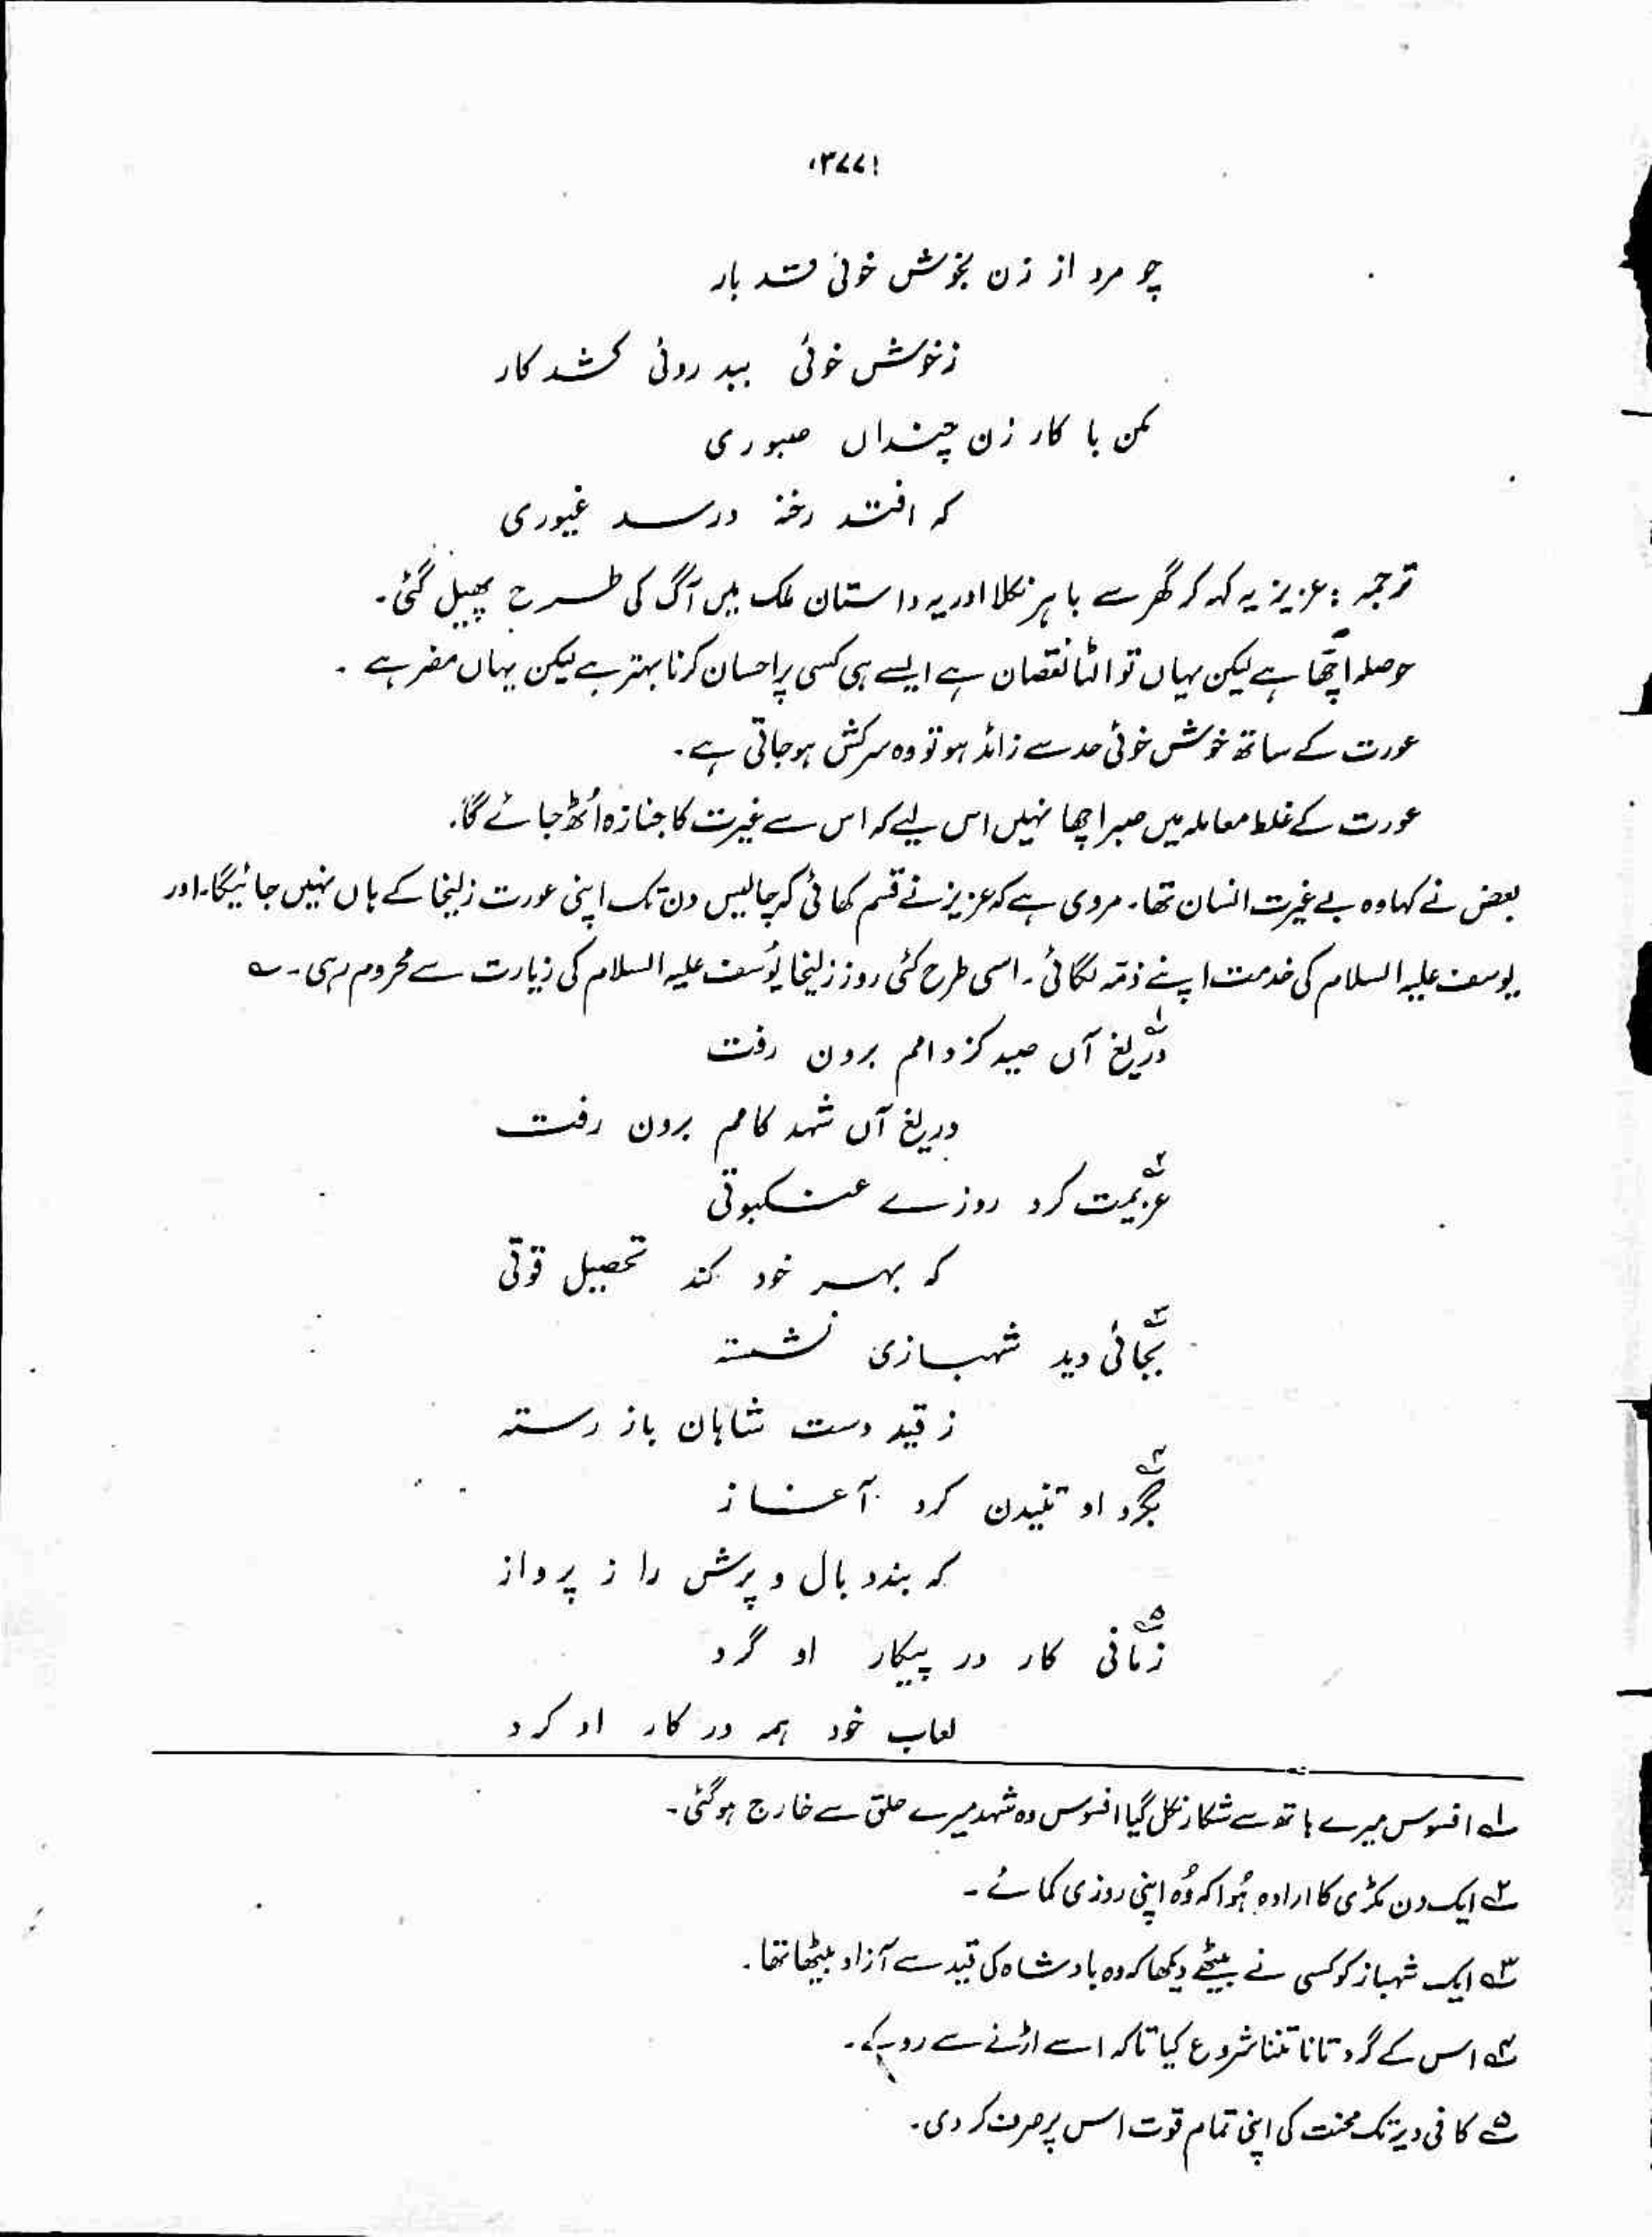 ۳۷۷
چو مرد از زن بخوش خوئی قتد بار
زخوش خوئی ببد روئی کشد کار
مکن با کار زن چنداں صبوری
کہ افتد رخنہ درسد غیوری
ترجمہ : عزیز یہ کہہ کر گھر سے باہر نکلا اور یہ داستان ملک میں آگ کی طرح پھیل گئی۔
حوصلہ اچھّا ہے لیکن یہاں تو الٹا نقصان ہے ایسے ہی کسی پر احسان کرنا بہتر ہے لیکن یہاں مضر ہے ۔
عورت کے ساتھ خوش خوئی حد سے زائد ہو تو وہ سرکش ہو جاتی ہے۔
عورت کے غلط معاملہ میں صبر اچھا نہیں اس لیے کہ اس سے غیرت کا جنازہ اُٹھ جائے گا۔
بعض نے کہا وہ بے غیرت انسان تھا۔ مروی ہے کہ عزیز نے قسم کھائی کہ چالیس دن تک اپنی عورت زلیخا کے ہاں نہیں جائیگا۔ اور
یوسف علیہ السلام کی خدمت اپنے ذمّہ لگائی۔ اسی طرح کئی روز زلیخا یوُسف علیہ السلام کی زیارت سے محروم رہی۔ ؎
۱؎ دریغ آں صید کز دامم برون رفت
دریغ آں شہد کامم برون رفت
۲؎ عزیمت کرد روزے عنکبوتی
کہ بہر خود کند تحصیل قوتی
۳؎ بجائی دید شہبازی نشستہ
ز قید دست شاہان باز رستہ
۴؎ بگرد او تنیدن کرد آغاز
کہ بندد بال و پرش را ز پرواز
۵؎ زمانی کار در پیکار او گرد
لعاب خود ہمہ در کار او کرد
۱؎ افسوس میرے ہاتھ سے شکار نکل گیا افسوس وہ شہد میرے حلق سے خارج ہو گئی۔
۲؎ ایک دن مکڑی کا ارادہ ہُوا کہ وُہ اپنی روزی کمائے ۔
۳؎ ایک شہباز کو کسی نے بیٹھے دیکھا کہ وہ بادشاہ کی قید سے آزاد بیٹھا تھا۔
۴؎ اس کے گرد تانا تننا شروع کیا تاکہ اسے اڑنے سے روکے۔
۵؎ کافی دیر تک محنت کی اپنی تمام قوت اس پر صرف کر دی۔